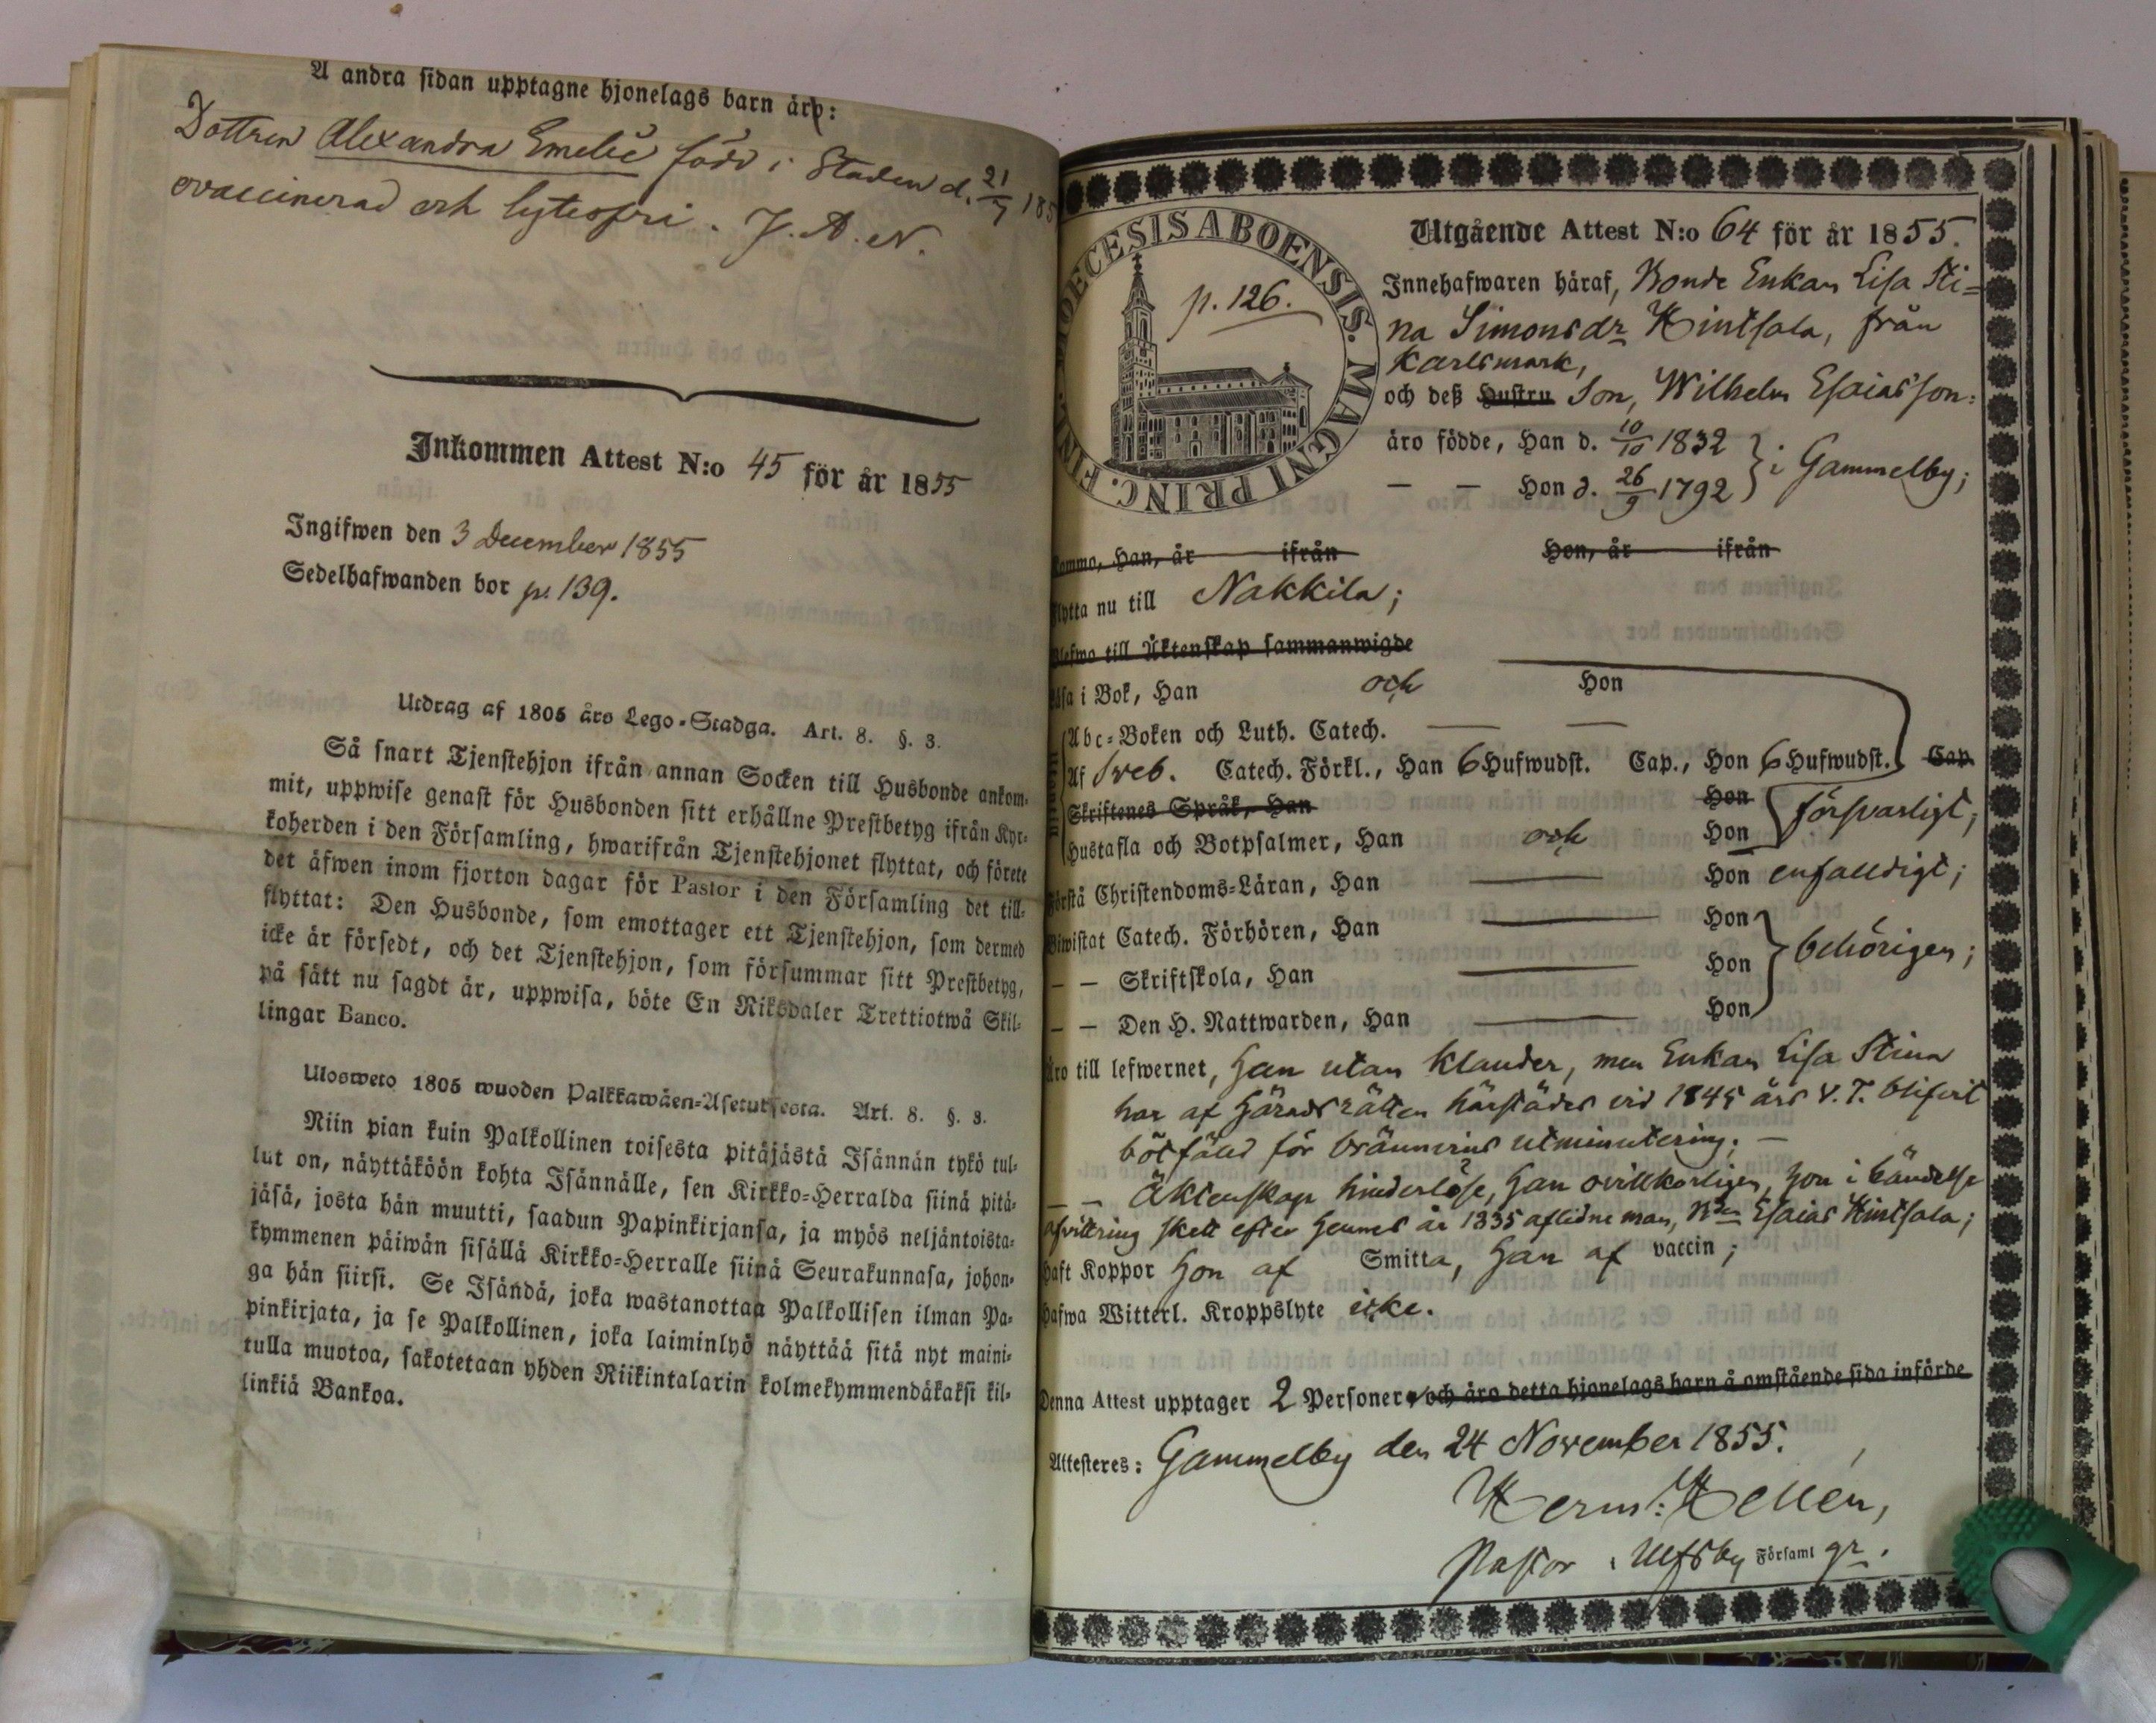 Å andra sidan upptagne hjonelags barn äro:
Dottren Alexandra Emelie född i Staden d. 21/7 185
ovaccinerad och lytesfri. J. A. N.
Inkommen Attest N:o 45 för år 1855
Ingifwen den 3 December 1855
Sedelhafwanden bor p. 139.
Utdrag af 1805 års Lego-Stadga. Art. 8. §. 3.
Så snart Tjenstehjon ifrån annan Socken till Husbonde ankom-
mit, uppwise genast för Husbonden sitt erhållne Prestbetyg ifrån Kyr-
koherden i den Församling, hwarifrån Tjenstehjonet flyttat, och förete
det äfwen inom fjorton dagar för Pastor i den Församling det till-
flyttat: Den Husbonde, som emottager ett Tjenstehjon, som dermed
icke är försedt, och det Tjenstehjon, som försummar sitt Prestbetyg,
på sätt nu sagdt är, uppwisa, böte En Riksdaler Trettiotwå Skil-
lingar Banco.
Ulosweto 1805 wuoden Palkkawäen-Asetuksesta. Art. 8. §. 3.
Niin pian kuin Palkollinen toisesta pitäjästä Isännän tykö tul-
lut on, näyttäköön kohta Isännälle, sen Kirkko-Herralda siinä pitä-
jäsä, josta hän muutti, saadun Papinkirjansa, ja myös neljäntoista-
kymmenen päiwän sisällä Kirkko-Herralle siinä Seurakunnasa, johon-
ga hän siirsi. Se Isändä, joka wastanottaa Palkollisen ilman Pa-
pinkirjata, ja se Palkollinen, joka laiminlyö näyttää sitä nyt maini-
tulla muotoa, sakotetaan yhden Riikintalarin kolmekymmendäkaksi kil-
linkiä Bankoa.
DIOECESIS ABOENSIS. MAGNI PRINC. FINL.
p. 126.
Utgående Attest N:o 64 för år 1855.
Innehafwaren häraf, Bonde Enkan Lisa Sti-
na Simonsdr Hintsala, från
Karlsmark,
och deß Hustru Son, Wilhelm Esaiasson:
äro födde, Han d. 10/10 1832
— — Hon d. 26/9 1792 } i Gammelby;
Kommo, Han, år ifrån Hon, år ifrån
Flytta nu till Nakkila;
Blefwo till Äktenskap sammanwigde
Läsa i Bok, Han och Hon
Abc-Boken och Luth. Catech. — —
Af Sveb. Catech. Förkl., Han 6 Hufwudst. Cap., Hon 6 Hufwudst. Cap.
Skriftenes Språk, Han Hon
Hustafla och Botpsalmer, Han och Hon försvarligt;
Förstå Christendoms-Läran, Han — Hon enfalldigt;
Biwistat Catech. Förhören, Han — Hon
— — Skriftskola, Han — Hon behörigen;
— — Den H. Nattwarden, Han — Hon
Äro till lefwernet, han utan klander, men Enkan Lisa Stina
har af Häradsrätten härstädes vid 1845 års V. T. blifvit
bötfälld för bränvins utminutering; —
— — Äktenskap hinderlöse, han ovillkorligen, hon i händelse
afvittring skett efter hennes år 1835 aflidne man, Bden Esaias Hintsala;
Haft Koppor Hon af Smitta, han af vaccin;
Hafwa Witterl. Kroppslyte icke.
Denna Attest upptager 2 Personer, och äro detta hjonelags barn å omstående sida införde
Attesteres: Gammelby den 24 November 1855.
Herm: Hellén,
Pastor i Ulfsby Församl gr.